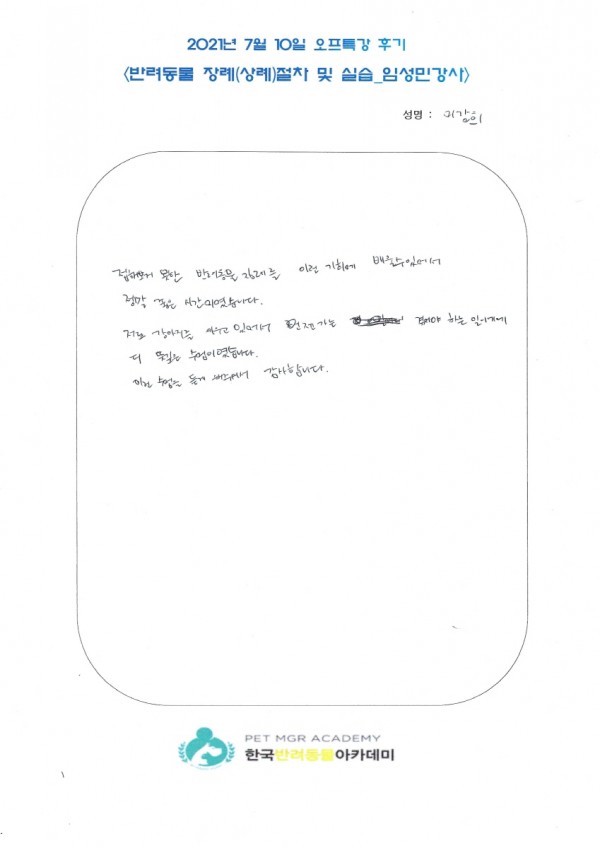 2021년 7월 10일 오프특강 후기
<반려동물 장례(상례)절차 및 실습_임성민강사>
성명 :
못한 반려동물 장례를 이런 기회에 배울수있어서
정말 좋은 시간이였습니다.
저도 강아지를 키우고 있어서 언젠가는 겪어야 하는 일이기에
더 뜻깊은 수업이였습니다.
이런 수업을 듣게 해주셔서 감사합니다.
PET MGR ACADEMY
한국반려동물아카데미